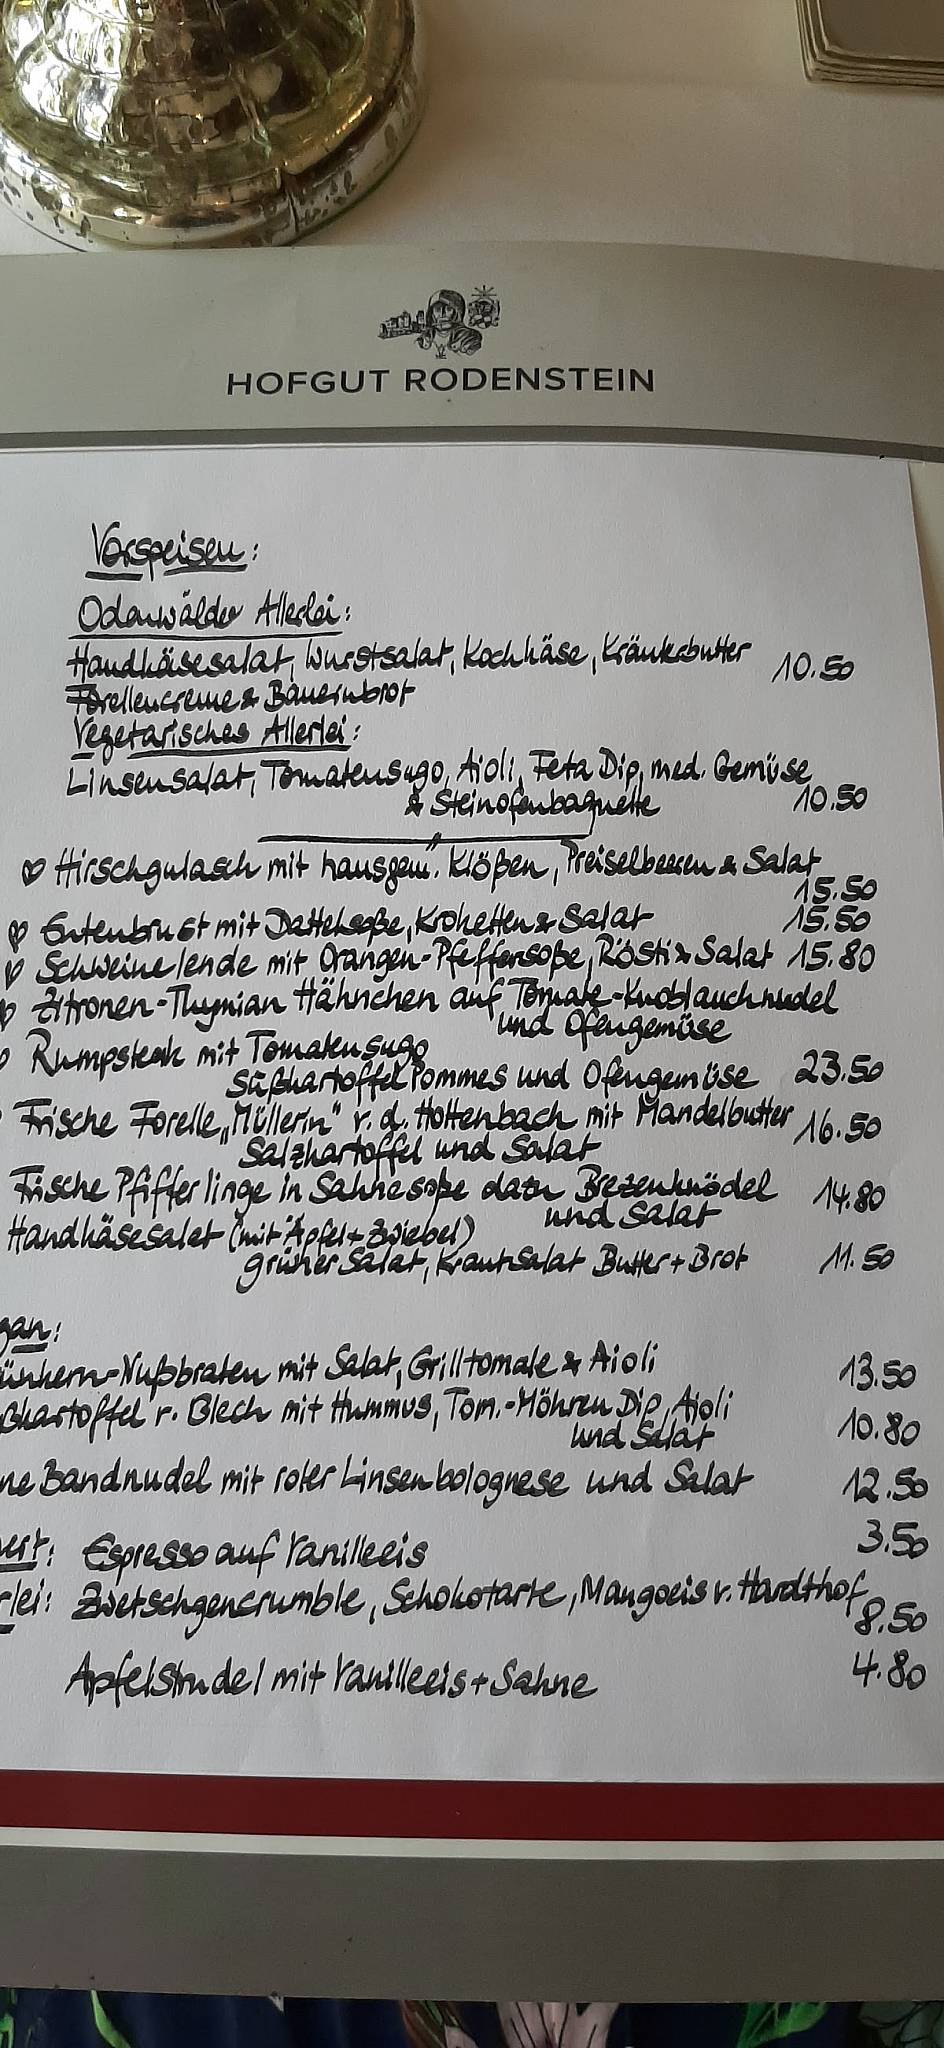 HOFGUT RODENSTEIN
Vorspeisen:
Odenwälder Allerlei:
Handkäsesalat, Wurstsalat, Kochkäse, Kräuterbutter 10.50
Forellencreme & Bauernbrot
Vegetarisches Allerlei:
Linsensalat, Tomatensugo, Aioli, Feta Dip, med. Gemüse
& Steinofenbaguette 10.50
Hirschgulasch mit hausgem. Klößen, Preiselbeeren & Salat
15.50
Entenbrust mit Dattelsoße, Kroketten & Salat 15.50
Schweinelende mit Orangen-Pfeffersoße, Rösti & Salat 15.80
Zitronen-Thymian Hähnchen auf Tomate-Knoblauchnudel
und Ofengemüse
Rumpsteak mit Tomatensugo
Süßkartoffel Pommes und Ofengemüse 23.50
Frische Forelle „Müllerin" v. d. Hottenbach mit Mandelbutter
Salzkartoffel und Salat 16.50
Frische Pfifferlinge in Sahnesoße dazu Brezenknödel
und Salat 14.80
Handkäsesalat (mit Äpfel + Zwiebel)
grüner Salat, Krautsalat Butter + Brot 11.50
gan:
ünkern-Nußbraten mit Salat, Grilltomate & Aioli 13.50
ßkartoffel v. Blech mit Hummus, Tom.-Möhren Dip, Aioli
und Salat 10.80
ne Bandnudel mit roter Linsenbolognese und Salat 12.50
ert: Espresso auf Vanilleeis 3.50
rlei: Zwetschgencrumble, Schokotarte, Mangoeis v. Hardthof
8.50
Apfelstrudel mit Vanilleeis + Sahne 4.80